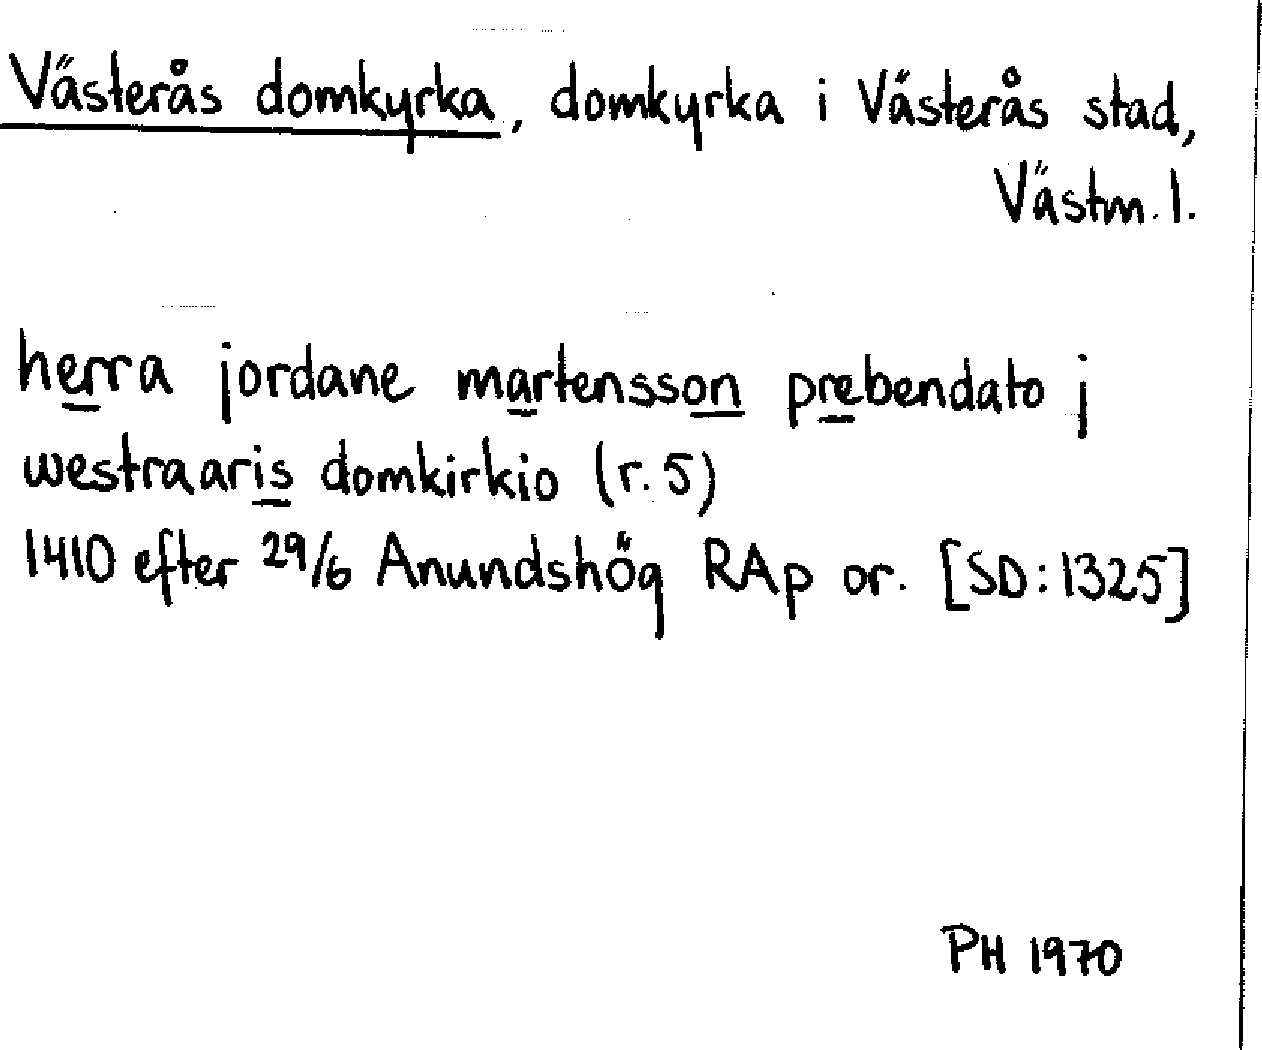 Västerås domkyrka, domkyrka i Västerås stad,
Västm. l.
herra jordane martensson prebendato j
westraaris domkirkio (r. 5)
1410 efter 29/6 Anundshög RAp or. [SD: 1325]
PH 1970